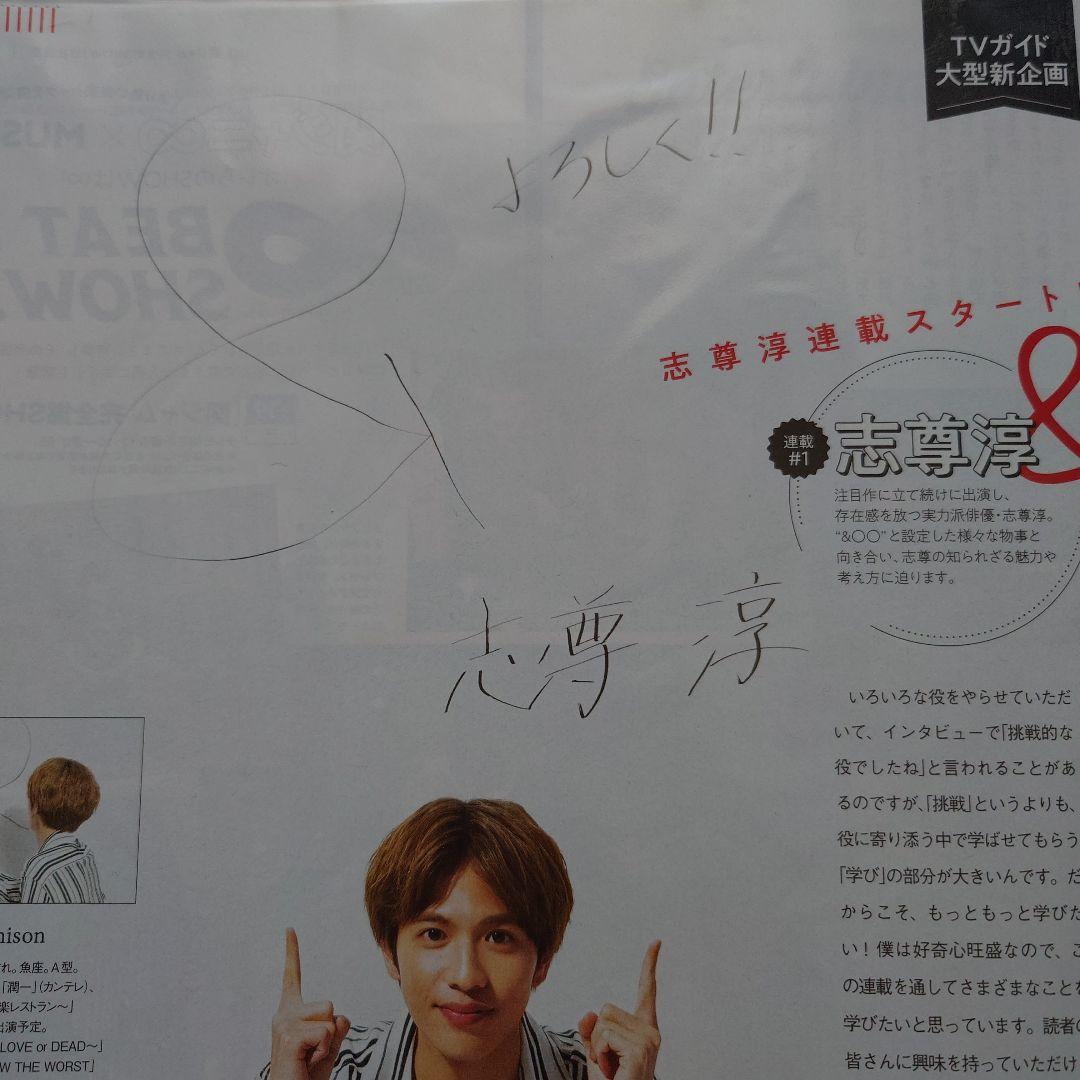 TVガイド
大型新企画
よろしく!!
&
志尊淳連載スタート
&
連載
#1
志尊淳
注目作に立て続けに出演し、
存在感を放つ実力派俳優・志尊淳。
“&〇〇”と設定した様々な物事と
向き合い、志尊の知られざる魅力や
考え方に迫ります。
志尊 淳
いろいろな役をやらせていただ
いて、インタビューで「挑戦的な
役でしたね」と言われることがあ
るのですが、「挑戦」というよりも、
役に寄り添う中で学ばせてもらう
「学び」の部分が大きいんです。だ
からこそ、もっともっと学びた
い！僕は好奇心旺盛なので、こ
の連載を通してさまざまなことを
学びたいと思っています。読者の
皆さんに興味を持っていただけ
nison
れ。魚座。A型。
「潤一」（カンテレ）、
楽レストラン〜」
出演予定。
LOVE or DEAD〜」
W THE WORST」